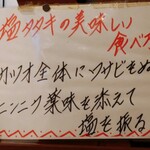 塩タタキの美味しい
食べ方
カツオ全体にワサビをぬ
ニンニク薬味を添えて
塩を振る